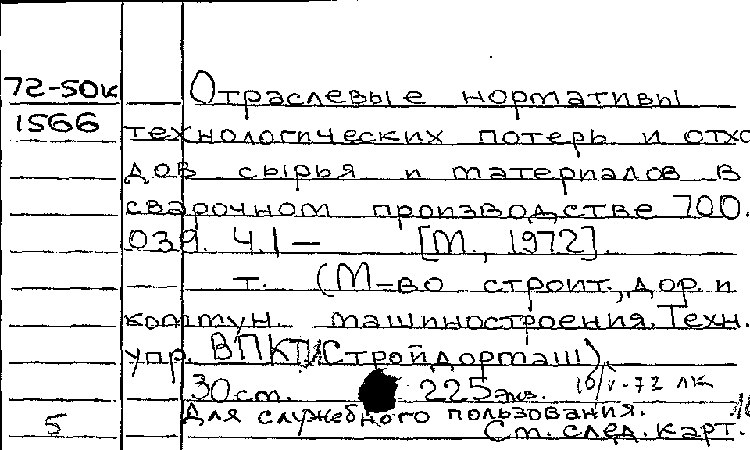 72-50к Отраслевые нормативы
1566 технологических потерь и отхо
дов сырья и материалов в
сварочном производстве 700.
039. Ч.1— [М., 1972].
т. (М-во строит., дор. и
коммун. машиностроения. Техн.
упр. ВПКТИСтройдормаш).
30см. 225экз.
Для служебного пользования.
5 См. след. карт.